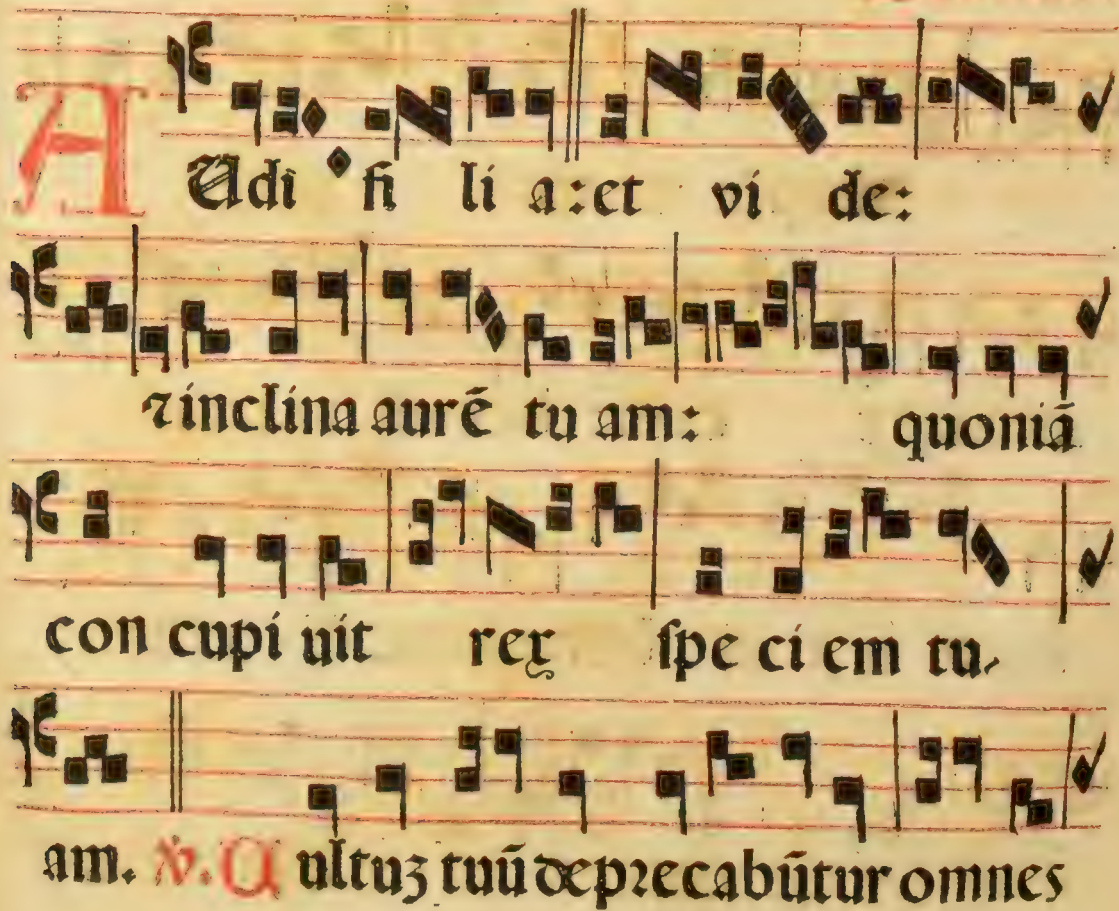 AUdi fi li a:et vi de:
⁊ inclina aurē tu am: quoniā
con cupi uit rex ſpe ci em tu-
am. ℣. U ultuꝫ tuū deprecabūtur omnes